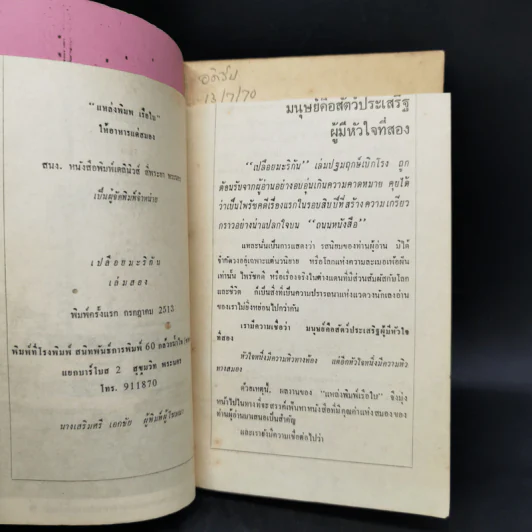 "แหล่งพิมพ์ เรือใบ"
ให้อาหารแด่สมอง
สนง. หนังสือพิมพ์เดลินิวส์ สี่พระยา พระนคร
เป็นผู้จัดพิมพ์จำหน่าย
เปลือยมะริกัน
เล่มสอง
พิมพ์ครั้งแรก กรกฎาคม 2513
พิมพ์ที่โรงพิมพ์ สนิทพันธ์การพิมพ์ 60
แยกบาร์โบส 2 สุขุมวิท พระนคร
โทร. 911870
นางเสริมศรี เอกชัย ผู้พิมพ์ผู้โฆษณา
13/7/70
มนุษย์คือสัตว์ประเสริฐ
ผู้มีหัวใจที่สอง
"เปลือยมะริกัน" เล่มปฐมฤกษ์เบิกโรง ถูก
ต้อนรับจากผู้อ่านอย่างอบอุ่นเกินความคาดหมาย คุยได้
ว่าเป็นไพรัชคดีเรื่องแรกในรอบสิบปีที่สร้างความเกรียว
กราวอย่างน่าแปลกใจบน "ถนนหนังสือ"
และนั่นเป็นการแสดงว่า รสนิยมของท่านผู้อ่าน มิได้
จำกัดวงอยู่เฉพาะแต่นวนิยาย หรือโลกแห่งความละเมอเพ้อฝัน
เท่านั้น ไพรัชคดี หรือเรื่องจริงในต่างแดนที่มีส่วนสัมผัสกับโลก
และชีวิต ก็เป็นสิ่งที่เป็นความปรารถนาแห่งแวดวงนักเลงอ่าน
ของเราไม่ยิ่งหย่อนไปกว่ากัน
เรามีความเชื่อว่า มนุษย์คือสัตว์ประเสริฐผู้มีหัวใจ
ที่สอง
หัวใจหนึ่งมีความหิวทางท้อง แต่อีกหัวใจหนึ่งมีความหิว
ทางสมอง
ด้วยเหตุนี้, ผลงานของ "แหล่งพิมพ์เรือใบ" จึงมุ่ง
หน้าไปในทางที่จะสรรค์เฟ้นหาหนังสือที่มีคุณค่าแห่งสมองของ
ท่านผู้อ่านมาเสนอเป็นสำคัญ
และเรายังมีความเชื่อต่อไปว่า